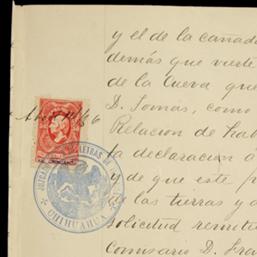 y el de la cañad
demás que vierte
de la Cueva que
D. Tomás, como
Relacion de hab
la declaración á
y de que este p
de las tierras y a
solicitud remite
Comisario D. Fra
JUZGADO LETRAS DE
CHIHUAHUA